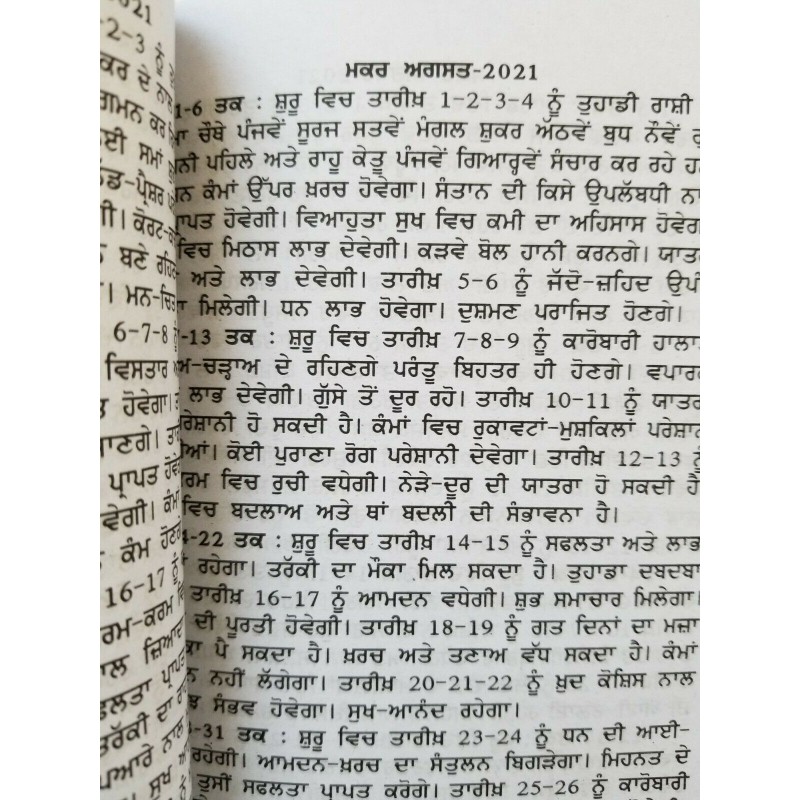 2021
-2-3 ਨੂੰ
ਕਰ ਦੇ ਨਾਲ
ਗਮਨ ਕਰ
ਈ ਸਮਾਂ
ਡ-ਪ੍ਰੈਸ਼ਰ
ਗੀ। ਕੋਰਟ-ਕ
ਬਣੇ ਰਹਿਣ
। ਮਨ-ਚਿਤ
6-7-8 ਨੂੰ
ਵਿਸਤਾਰ
ਹੋਵੇਗਾ।
ਜਾਣਗੇ।
ਪ੍ਰਾਪਤ ਹੋਵੇ
ਵੇਗੀ। ਕੰਮਾਂ
ਕੰਮ ਹੋਣਗੇ
16-17 ਨੂੰ
ਰਮ-ਕਰਮ
ਾਲ ਜ਼ਿਆਦਾ
ਫਲਤਾ ਪ੍ਰਾਪਤ
ਤਰੱਕੀ ਦਾ
ਪਿਆਰੇ ਨਾਲ
ਸੁਖ
ਮਕਰ ਅਗਸਤ-2021
1-6 ਤਕ : ਸ਼ੁਰੂ ਵਿਚ ਤਾਰੀਖ਼ 1-2-3-4 ਨੂੰ ਤੁਹਾਡੀ ਰਾਸ਼ੀ
ਾ ਚੌਥੇ ਪੰਜਵੇਂ ਸੂਰਜ ਸਤਵੇਂ ਮੰਗਲ ਸ਼ੁਕਰ ਅੱਠਵੇਂ ਬੁਧ ਨੌਵੇਂ
ਨੀ ਪਹਿਲੇ ਅਤੇ ਰਾਹੂ ਕੇਤੂ ਪੰਜਵੇਂ ਗਿਆਰ੍ਹਵੇਂ ਸੰਚਾਰ ਕਰ ਰਹੇ ਹ
ਨ ਕੰਮਾਂ ਉੱਪਰ ਖ਼ਰਚ ਹੋਵੇਗਾ। ਸੰਤਾਨ ਦੀ ਕਿਸੇ ਉਪਲੱਬਧੀ ਨਾ
ਾਪਤ ਹੋਵੇਗੀ। ਵਿਆਹੁਤਾ ਸੁਖ ਵਿਚ ਕਮੀ ਦਾ ਅਹਿਸਾਸ ਹੋਵੇਗ
ਵਿਚ ਮਿਠਾਸ ਲਾਭ ਦੇਵੇਗੀ। ਕੜਵੇ ਬੋਲ ਹਾਨੀ ਕਰਨਗੇ। ਯਾਤਰ
ਅਤੇ ਲਾਭ ਦੇਵੇਗੀ। ਤਾਰੀਖ਼ 5-6 ਨੂੰ ਜੱਦੋ-ਜ਼ਹਿਦ ਉਪੰ
ਾ ਮਿਲੇਗੀ। ਧਨ ਲਾਭ ਹੋਵੇਗਾ। ਦੁਸ਼ਮਣ ਪਰਾਜਿਤ ਹੋਣਗੇ।
-13 ਤਕ : ਸ਼ੁਰੂ ਵਿਚ ਤਾਰੀਖ਼ 7-8-9 ਨੂੰ ਕਾਰੋਬਾਰੀ ਹਾਲਾ
ਅ-ਚੜ੍ਹਾਅ ਦੇ ਰਹਿਣਗੇ ਪਰੰਤੂ ਬਿਹਤਰ ਹੀ ਹੋਣਗੇ। ਵਪਾਰ
ਲਾਭ ਦੇਵੇਗੀ। ਗੁੱਸੇ ਤੋਂ ਦੂਰ ਰਹੋ। ਤਾਰੀਖ਼ 10-11 ਨੂੰ ਯਾਤਰ
ਰੇਸ਼ਾਨੀ ਹੋ ਸਕਦੀ ਹੈ। ਕੰਮਾਂ ਵਿਚ ਰੁਕਾਵਟਾਂ-ਮੁਸ਼ਕਿਲਾਂ ਪਰੇਸ਼ਾਨ
ੀਆਂ। ਕੋਈ ਪੁਰਾਣਾ ਰੋਗ ਪਰੇਸ਼ਾਨੀ ਦੇਵੇਗਾ। ਤਾਰੀਖ਼ 12-13 ਨੂੰ
ਰਮ ਵਿਚ ਰੁਚੀ ਵਧੇਗੀ। ਨੇੜੇ-ਦੂਰ ਦੀ ਯਾਤਰਾ ਹੋ ਸਕਦੀ ਹੈ
ਵਿਚ ਬਦਲਾਅ ਅਤੇ ਥਾਂ ਬਦਲੀ ਦੀ ਸੰਭਾਵਨਾ ਹੈ।
-22 ਤਕ : ਸ਼ੁਰੂ ਵਿਚ ਤਾਰੀਖ਼ 14-15 ਨੂੰ ਸਫਲਤਾ ਅਤੇ ਲਾਭ
ਰਹੇਗਾ। ਤਰੱਕੀ ਦਾ ਮੌਕਾ ਮਿਲ ਸਕਦਾ ਹੈ। ਤੁਹਾਡਾ ਦਬਦਬਾ
ਤਾਰੀਖ਼ 16-17 ਨੂੰ ਆਮਦਨ ਵਧੇਗੀ। ਸ਼ੁਭ ਸਮਾਚਾਰ ਮਿਲੇਗਾ।
ਦੀ ਪੂਰਤੀ ਹੋਵੇਗੀ। ਤਾਰੀਖ਼ 18-19 ਨੂੰ ਗਤ ਦਿਨਾਂ ਦਾ ਮਜ਼ਾ
ਕਾ ਪੈ ਸਕਦਾ ਹੈ। ਖ਼ਰਚ ਅਤੇ ਤਣਾਅ ਵੱਧ ਸਕਦਾ ਹੈ। ਕੰਮਾਂ
ਨ ਨਹੀਂ ਲੱਗੇਗਾ। ਤਾਰੀਖ਼ 20-21-22 ਨੂੰ ਖ਼ੁਦ ਕੋਸ਼ਿਸ ਨਾਲ
ਸੰਭਵ ਹੋਵੇਗਾ। ਸੁਖ-ਆਨੰਦ ਰਹੇਗਾ।
-31 ਤਕ : ਸ਼ੁਰੂ ਵਿਚ ਤਾਰੀਖ਼ 23-24 ਨੂੰ ਧਨ ਦੀ ਆਈ-
ਰਹੇਗੀ। ਆਮਦਨ-ਖ਼ਰਚ ਦਾ ਸੰਤੁਲਨ ਬਿਗੜੇਗਾ। ਮਿਹਨਤ ਦੇ
ਤੁਸੀਂ ਸਫਲਤਾ ਪ੍ਰਾਪਤ ਕਰੋਗੇ। ਤਾਰੀਖ਼ 25-26 ਨੂੰ ਕਾਰੋਬਾਰੀ